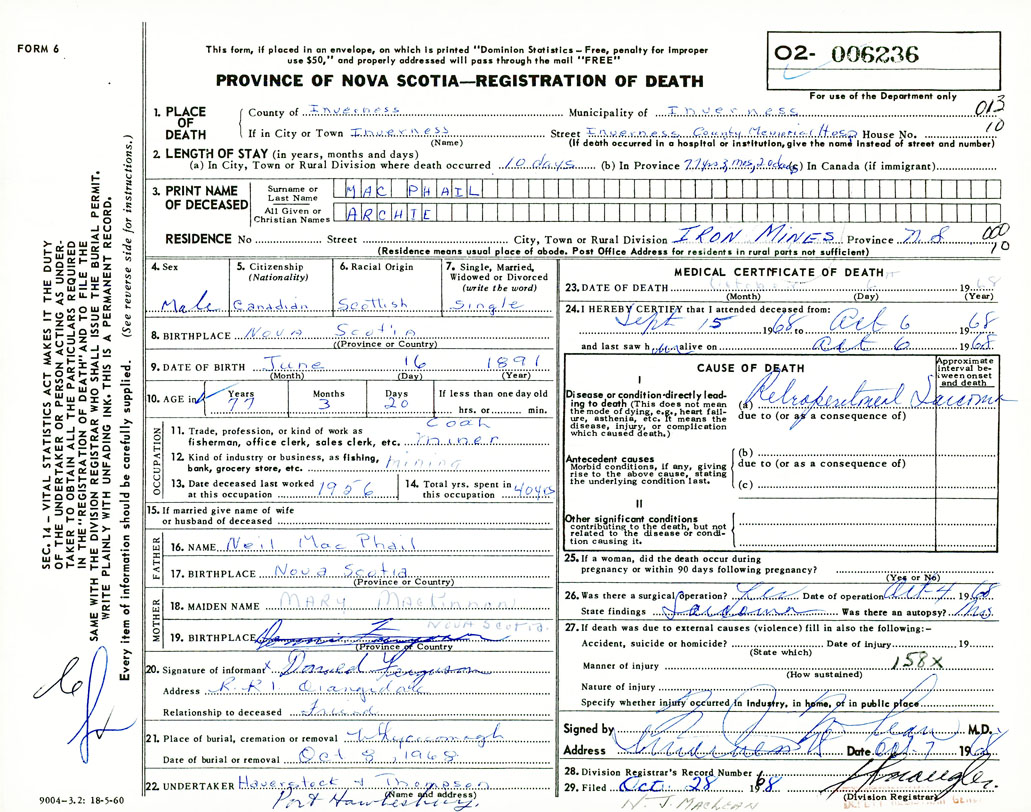 FORM 6
This form, if placed in an envelope, on which is printed "Dominion Statistics – Free, penalty for improper
use $50," and properly addressed will pass through the mail "FREE"
PROVINCE OF NOVA SCOTIA—REGISTRATION OF DEATH
O2- 006236
For use of the Department only
013
10
1. PLACE OF DEATH
County of Inverness Municipality of Inverness
If in City or Town Inverness Street Inverness County Memorial Hosp House No.
(Name) (If death occurred in a hospital or institution, give the name instead of street and number)
2. LENGTH OF STAY (in years, months and days)
(a) In City, Town or Rural Division where death occurred 10 days (b) In Province 77 yrs 3 mos, 20 days (c) In Canada (if immigrant)
3. PRINT NAME OF DECEASED
Surname or Last Name MAC PHAIL
All Given or Christian Names ARCHIE
RESIDENCE No Street City, Town or Rural Division IRON MINES Province N.S
000
10
(Residence means usual place of abode. Post Office Address for residents in rural parts not sufficient)
4. Sex
Male
5. Citizenship
(Nationality)
Canadian
6. Racial Origin
Scottish
7. Single, Married,
Widowed or Divorced
(write the word)
Single
8. BIRTHPLACE Nova Scotia
(Province or Country)
9. DATE OF BIRTH June 16 1891
(Month) (Day) (Year)
10. AGE in
Years Months Days If less than one day old
77 3 20 hrs. or min.
OCCUPATION
11. Trade, profession, or kind of work as
fisherman, office clerk, sales clerk, etc. Coal miner
12. Kind of industry or business, as fishing,
bank, grocery store, etc. mining
13. Date deceased last worked
at this occupation 1956
14. Total yrs. spent in
this occupation 40 yrs
15. If married give name of wife
or husband of deceased
FATHER
16. NAME Neil MacPhail
17. BIRTHPLACE Nova Scotia
(Province or Country)
MOTHER
18. MAIDEN NAME MARY MacKinnon
19. BIRTHPLACE NOVA SCOTIA.
(Province or Country
20. Signature of informant x Donald Ferguson
Address R.R1 Orangedale
Relationship to deceased friend
21. Place of burial, cremation or removal Whycocomagh
Date of burial or removal Oct 8, 1968
22. UNDERTAKER Haverstock & Thompson
(Name and address)
Port Hawkesbury.
MEDICAL CERTIFICATE OF DEATH
23. DATE OF DEATH October 6 1968
(Month) (Day) (Year)
24. I HEREBY CERTIFY that I attended deceased from:
Sept 15 1968 to Oct 6 1968
and last saw him alive on Oct 6 1968
CAUSE OF DEATH
Approximate
interval be-
tween onset
and death
I
Disease or condition directly lead-
ing to death (This does not mean
the mode of dying, e.g., heart fail-
ure, asthenia, etc. It means the
disease, injury, or complication
which caused death.)
(a) Retroperitoneal Sarcoma
due to (or as a consequence of)
Antecedent causes
Morbid conditions, if any, giving
rise to the above cause, stating
the underlying condition last.
(b)
due to (or as a consequence of)
(c)
II
Other significant conditions
contributing to the death, but not
related to the disease or condi-
tion causing it.
25. If a woman, did the death occur during
pregnancy or within 90 days following pregnancy?
(Yes or No)
26. Was there a surgical operation? Yes Date of operation Oct 4 1968
State findings Sarcoma Was there an autopsy? No
27. If death was due to external causes (violence) fill in also the following:–
Accident, suicide or homicide? Date of injury 19
(State which)
Manner of injury 158x
(How sustained)
Nature of injury
Specify whether injury occurred in Industry, in home, or in public place
Signed by M.D.
Address Inverness Date Oct 7 1968
28. Division Registrar's Record Number 68
29. Filed Oct. 28 1968
(Division Registrar)
N. J. MacLean
SEC. 14 – VITAL STATISTICS ACT MAKES IT THE DUTY
OF THE UNDERTAKER OR PERSON ACTING AS UNDER-
TAKER TO OBTAIN ALL THE PARTICULARS REQUIRED
IN THE "REGISTRATION OF DEATH" AND TO FILE THE
SAME WITH THE DIVISION REGISTRAR WHO SHALL ISSUE THE BURIAL PERMIT.
WRITE PLAINLY WITH UNFADING INK. THIS IS A PERMANENT RECORD.
Every item of information should be carefully supplied. (See reverse side for instructions.)
9004–3.2: 18-5-60